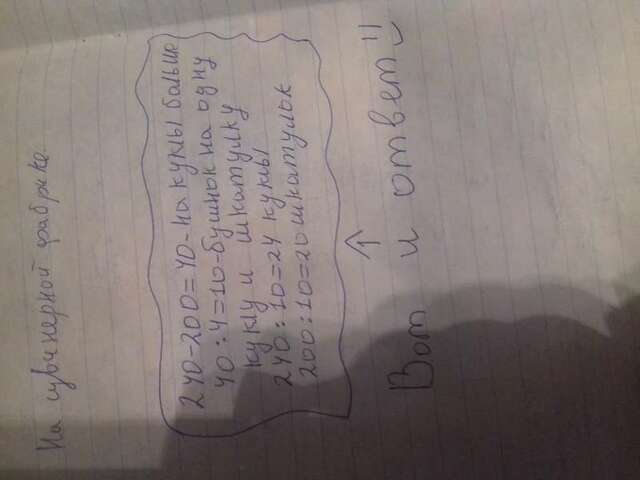 На сувинерной фабрике.
240-200=40-на куклы больше
40:4=10-бушнок на одну
куклу и шкатулку
240:10=24 куклы
200:10=20 шкатулок
Вот и ответ!!